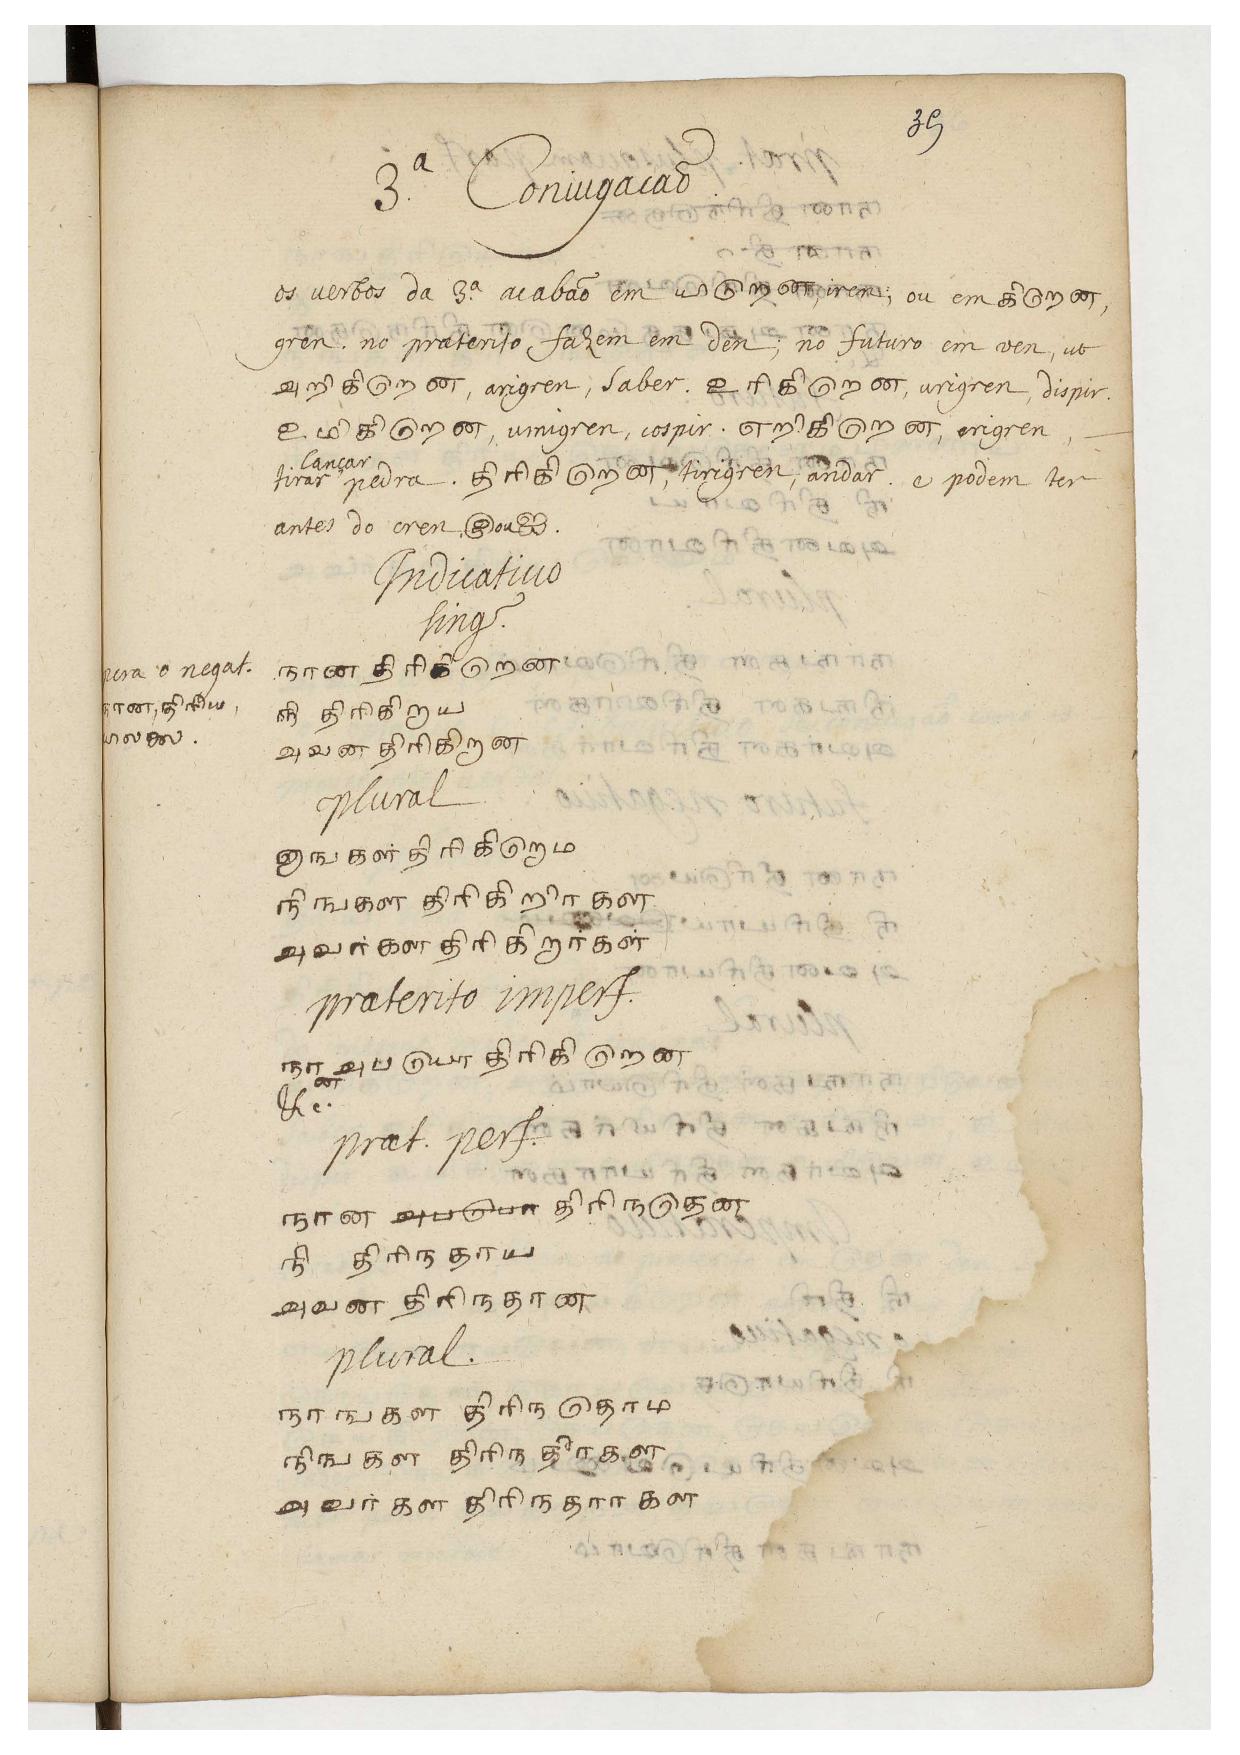 39
3.ª Coniugacaõ
os verbos da 3.ª acabaõ em iren; ou em கிறென,
gren. no præterito fazem em den; no futuro em ven, ut
அறிகிறென, arigren, saber. உரிகிறென, urigren, dispir.
உமிகிறென, umigren, cospir. எறிகிறென, erigren,
lançar
tirar pedra. திரிகிறென, tirigren, andar. e podem ter
antes do eren இ ou ஐ.
Indicatiuo
sing.
pera o negat.
நான, திரிய,
நான திரிகிறென
நி திரிகிறய
அவன திரிகிறன
plural
நாஙகள் திரிகிறெம
நிஙகள திரிகிறிரகள
அவர்கள திரிகிறர்கள்
præterito imperf.
நான அபடுயா திரிகிறென
&c.
præt. perf.
நான அபடுயா திரிநதென
நி திரிநதாய
அவன திரிநதான
plural.
நாஙகள திரிநதொம
நிஙகள திரிநதிரகள
அவர்கள திரிநதாரகள